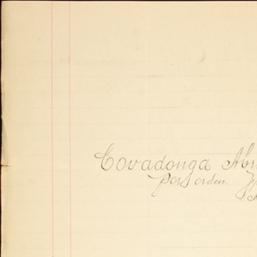 Covadonga
por orden